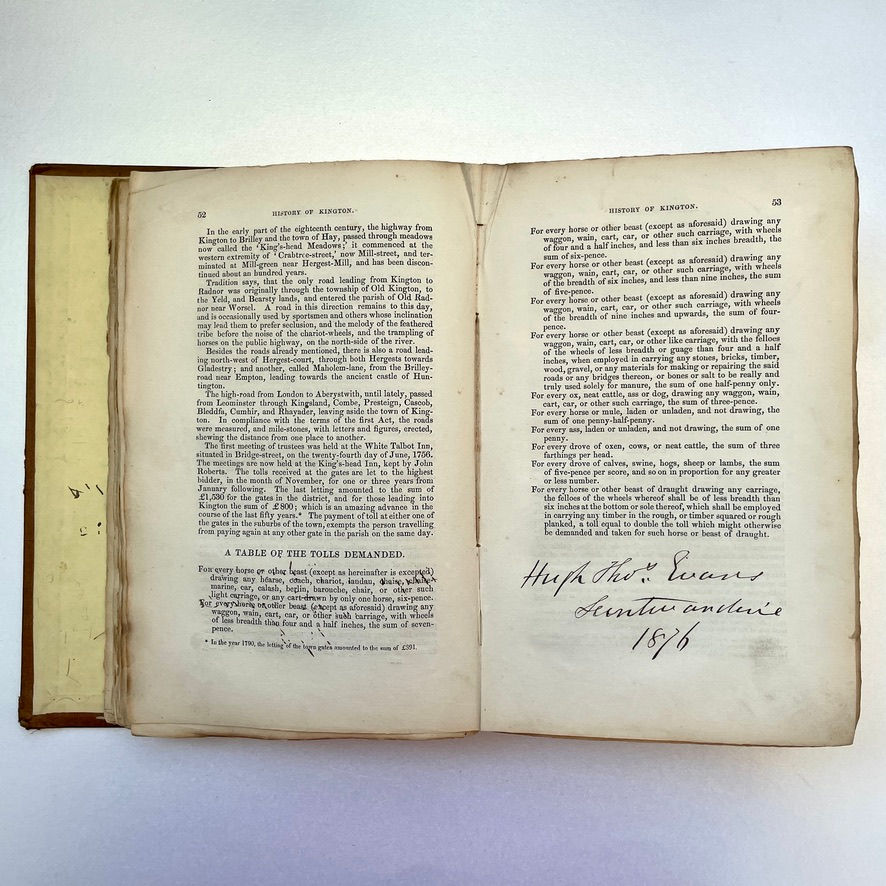 52
HISTORY OF KINGTON.
In the early part of the eighteenth century, the highway from
Kington to Brilley and the town of Hay, passed through meadows
now called the 'King's-head Meadows;' it commenced at the
western extremity of 'Crabtree-street,' now Mill-street, and ter-
minated at Mill-green near Hergest-Mill, and has been discon-
tinued about an hundred years.
Tradition says, that the only road leading from Kington to
Radnor was originally through the township of Old Kington, to
the Yeld, and Bearsty lands, and entered the parish of Old Rad-
nor near Worsel. A road in this direction remains to this day,
and is occasionally used by sportsmen and others whose inclination
may lead them to prefer seclusion, and the melody of the feathered
tribe before the noise of the chariot-wheels, and the trampling of
horses on the public highway, on the north-side of the river.
Besides the roads already mentioned, there is also a road lead-
ing north-west of Hergest-court, through both Hergests towards
Gladestry; and another, called Maholem-lane, from the Brilley-
road near Empton, leading towards the ancient castle of Hun-
tington.
The high-road from London to Aberystwith, until lately, passed
from Leominster through Kingsland, Combe, Presteign, Cascob,
Bleddfa, Cumhir, and Rhayader, leaving aside the town of King-
ton. In compliance with the terms of the first Act, the roads
were measured, and mile-stones, with letters and figures, erected,
shewing the distance from one place to another.
The first meeting of trustees was held at the White Talbot Inn,
situated in Bridge-street, on the twenty-fourth day of June, 1756.
The meetings are now held at the King's-head Inn, kept by John
Roberts. The tolls received at the gates are let to the highest
bidder, in the month of November, for one or three years from
January following. The last letting amounted to the sum of
£1,530 for the gates in the district, and for those leading into
Kington the sum of £800; which is an amazing advance in the
course of the last fifty years.* The payment of toll at either one of
the gates in the suburbs of the town, exempts the person travelling
from paying again at any other gate in the parish on the same day.
A TABLE OF THE TOLLS DEMANDED.
For every horse or other beast (except as hereinafter is excepted)
drawing any hearse, coach, chariot, landau, chaise,
marine, car, calash, berlin, barouche, chair, or other such
light carriage, or any cart drawn by only one horse, six-pence.
For every horse or other beast (except as aforesaid) drawing any
waggon, wain, cart, car, or other such carriage, with wheels
of less breadth than four and a half inches, the sum of seven-
pence.
* In the year 1790, the letting of the town gates amounted to the sum of £391.
HISTORY OF KINGTON.
53
For every horse or other beast (except as aforesaid) drawing any
waggon, wain, cart, car, or other such carriage, with wheels
of four and a half inches, and less than six inches breadth, the
sum of six-pence.
For every horse or other beast (except as aforesaid) drawing any
waggon, wain, cart, car, or other such carriage, with wheels
of the breadth of six inches, and less than nine inches, the sum
of five-pence.
For every horse or other beast (except as aforesaid) drawing any
waggon, wain, cart, car, or other such carriage, with wheels
of the breadth of nine inches and upwards, the sum of four-
pence.
For every horse or other beast (except as aforesaid) drawing any
waggon, wain, cart, car, or other like carriage, with the felloes
of the wheels of less breadth or guage than four and a half
inches, when employed in carrying any stones, bricks, timber,
wood, gravel, or any materials for making or repairing the said
roads or any bridges thereon, or bones or salt to be really and
truly used solely for manure, the sum of one half-penny only.
For every ox, neat cattle, ass or dog, drawing any waggon, wain,
cart, car, or other such carriage, the sum of three-pence.
For every horse or mule, laden or unladen, and not drawing, the
sum of one penny-half-penny.
For every ass, laden or unladen, and not drawing, the sum of one
penny.
For every drove of oxen, cows, or neat cattle, the sum of three
farthings per head.
For every drove of calves, swine, hogs, sheep or lambs, the sum
of five-pence per score, and so on in proportion for any greater
or less number.
For every horse or other beast of draught drawing any carriage,
the felloes of the wheels whereof shall be of less breadth than
six inches at the bottom or sole thereof, which shall be employed
in carrying any timber in the rough, or timber squared or rough
planked, a toll equal to double the toll which might otherwise
be demanded and taken for such horse or beast of draught.
Hugh Thos. Evans
1876